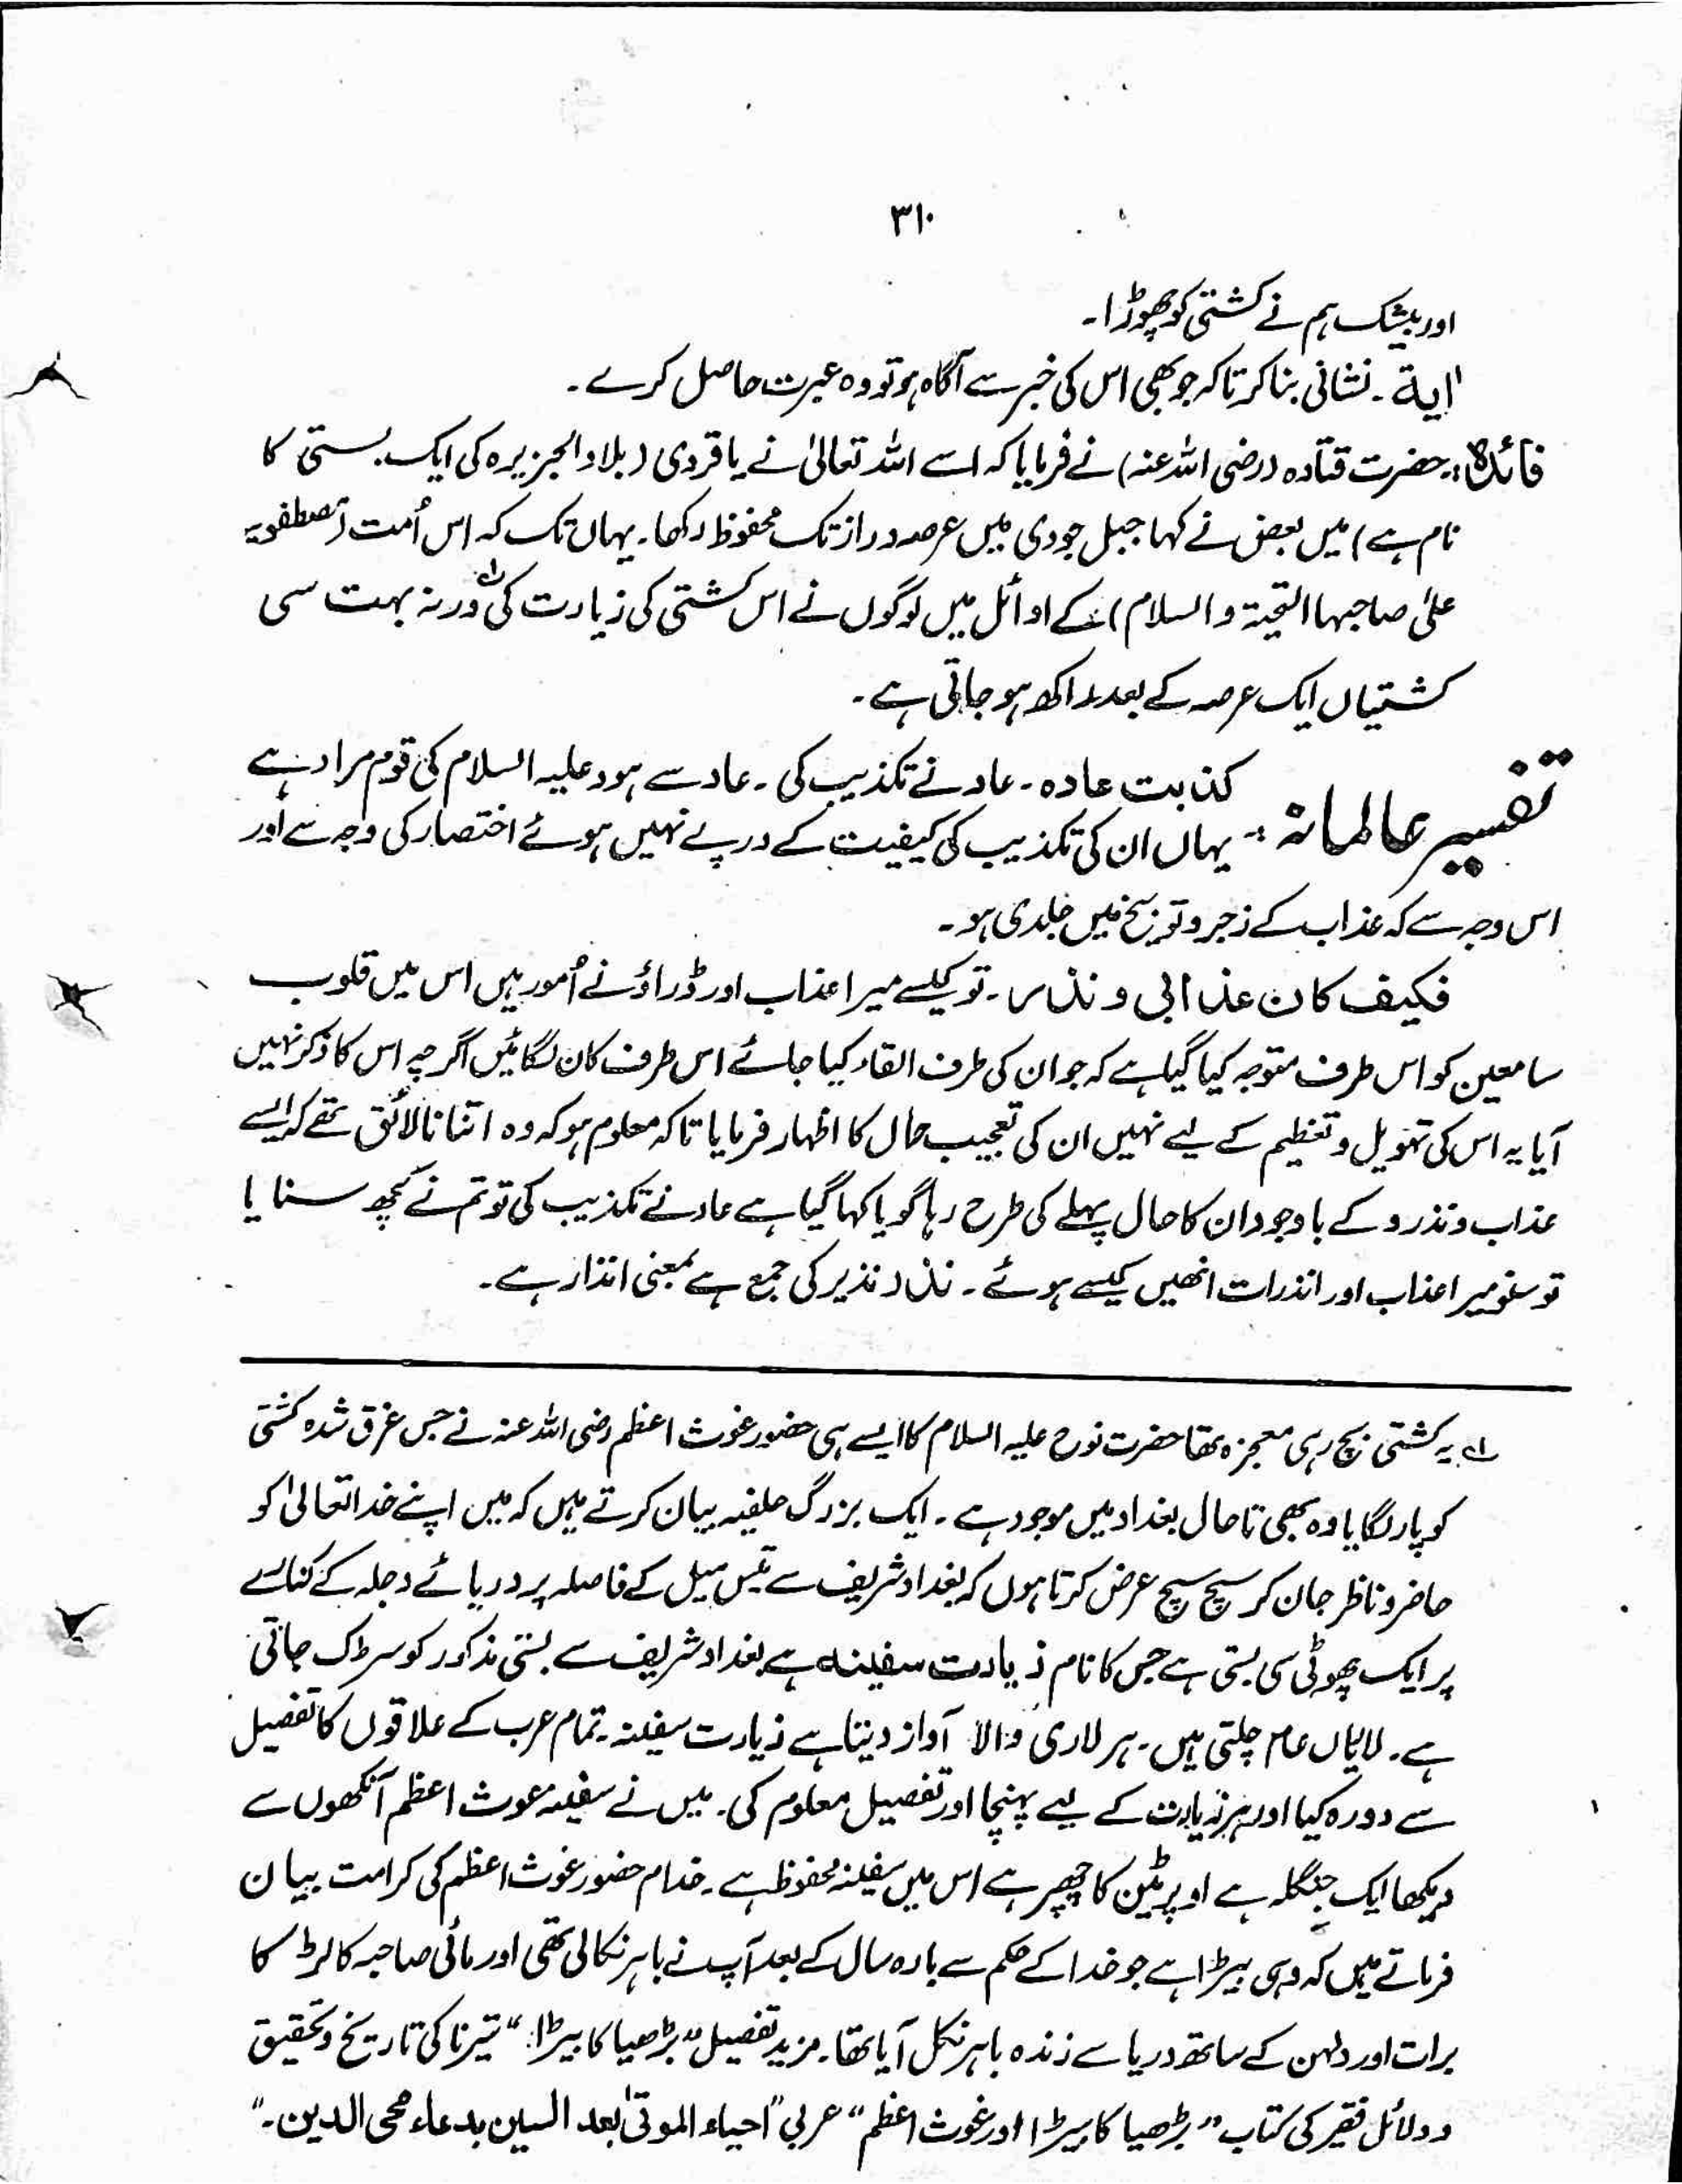 ۳۱۰
اور بیشک ہم نے کشتی کو چھوڑا۔
اٰیة۔ نشانی بنا کر تاکہ جو بھی اس کی خبر سے آگاہ ہو تو وہ عبرت حاصل کرے۔
فائدہ:۔ حضرت قتادہ (رضی اللہ عنہ) نے فرمایا کہ اسے اللہ تعالیٰ نے یاقردی (بلاد الجزیرہ کی ایک بستی کا
نام ہے) میں بعض نے کہا جبل جودی میں عرصہ دراز تک محفوظ رکھا۔ یہاں تک کہ اس اُمت (مصطفویہ
علیٰ صاحبہا التحیۃ والسلام) کے اوائل میں لوگوں نے اس کشتی کی زیارت کی ورنہ بہت سی
کشتیاں ایک عرصہ کے بعد راکھ ہو جاتی ہے۔
تفسیر عالمانہ :۔ کذبت عادہ۔ عاد نے تکذیب کی۔ عاد سے ہود علیہ السلام کی قوم مراد ہے
یہاں ان کی تکذیب کی کیفیت کے درپے نہیں ہوئے اختصار کی وجہ سے اور
اس وجہ سے کہ عذاب کے زجر و توبیخ میں جلدی ہو۔
فکیف کان عذابی و نذر۔ تو کیسے میرا عذاب اور ڈراؤنے اُمور ہیں اس میں قلوب
سامعین کو اس طرف متوجہ کیا گیا ہے کہ جو ان کی طرف القاء کیا جائے اس طرف کان لگائیں اگرچہ اس کا ذکر نہیں
آیا یہ اس کی تہویل و تعظیم کے لیے نہیں ان کی تعجیب حال کا اظہار فرمایا تاکہ معلوم ہو کہ وہ اتنا نالائق تھے کہ ایسے
عذاب و نذرو کے باوجود ان کا حال پہلے کی طرح رہا گویا کہا گیا ہے عاد نے تکذیب کی تو تم نے کچھ سنا یا
تو سنو میرا عذاب اور انذرات انھیں کیسے ہوئے۔ نذر نذیر کی جمع ہے بمعنی انذار ہے۔
لہ یہ کشتی بچ رہی معجزہ تھا حضرت نوح علیہ السلام کا ایسے ہی حضور غوث اعظم رضی اللہ عنہ نے جس غرق شدہ کشتی
کو پار لگایا وہ بھی تاحال بغداد میں موجود ہے۔ ایک بزرگ حلفیہ بیان کرتے ہیں کہ میں اپنے خدا تعالیٰ کو
حاضر و ناظر جان کر سچ سچ عرض کرتا ہوں کہ بغداد شریف سے تیس میل کے فاصلہ پر دریائے دجلہ کے کنارے
پر ایک چھوٹی سی بستی ہے جس کا نام زیارت سفینہ ہے بغداد شریف سے بستی مذکور کو سڑک جاتی
ہے۔ لاریاں عام چلتی ہیں۔ ہر لاری والا آواز دیتا ہے زیارت سفینہ۔ تمام عرب کے علاقوں کا تفصیل
سے دورہ کیا اور ہر زیارت کے لیے پہنچا اور تفصیل معلوم کی۔ میں نے سفینہ غوث اعظم آنکھوں سے
دیکھا ایک جنگلہ ہے اوپر ٹین کا چھپر ہے اس میں سفینہ محفوظ ہے۔ خدام حضور غوث اعظم کی کرامت بیان
فرماتے ہیں کہ وہی بیڑا ہے جو خدا کے حکم سے بارہ سال کے بعد آپ نے باہر نکالی تھی اور مائی صاحبہ کا لڑکا
برات اور دلہن کے ساتھ دریا سے زندہ باہر نکل آیا تھا۔ مزید تفصیل ”بڑھیا کا بیڑا“ تیرنا کی تاریخ و تحقیق
و دلائل فقیر کی کتاب ”بڑھیا کا بیڑا اور غوث اعظم“ عربی ”احیاء الموتیٰ بعد السین بدعاء محی الدین۔“